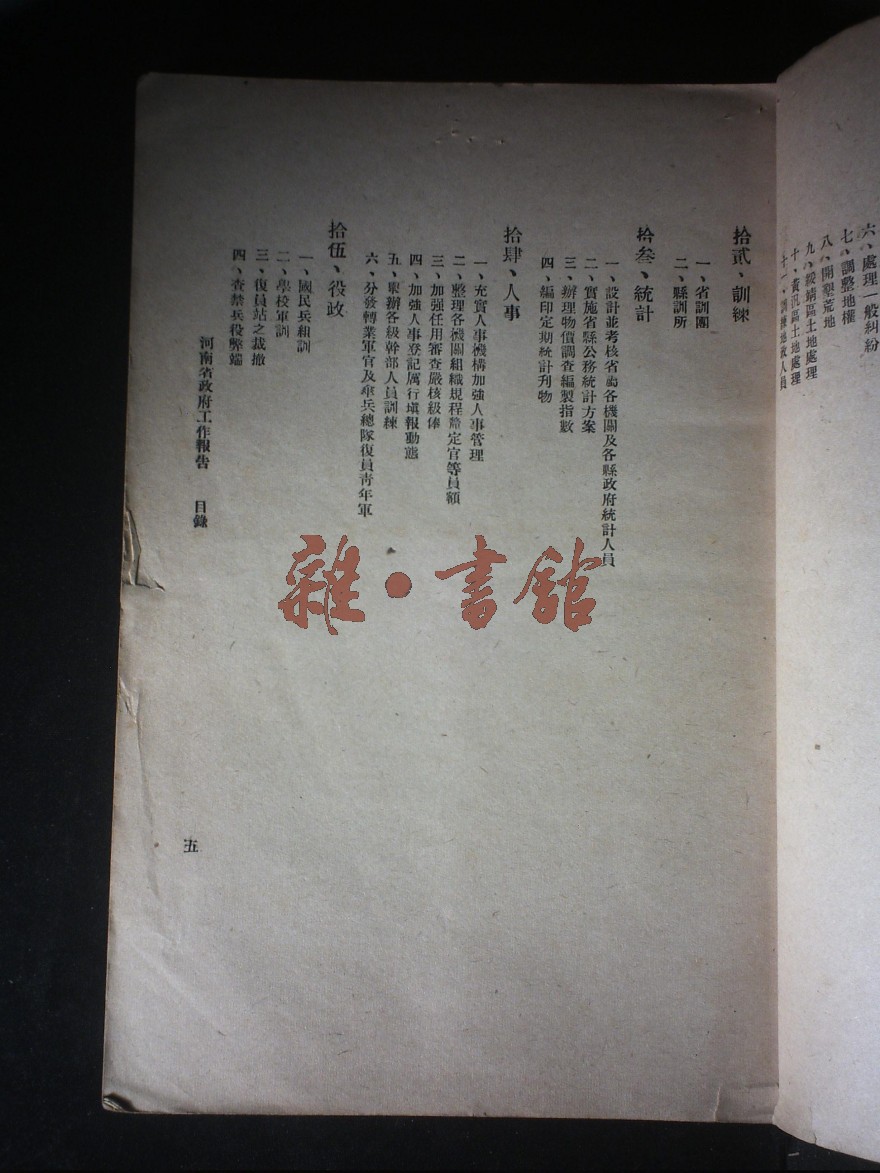 六、處理一般糾紛
七、調整地權
八、開墾荒地
九、綏靖區土地處理
十、黃汎區土地處理
十一、訓練地政人員
拾貳、訓練
一、省訓團
二、縣訓所
拾叁、統計
一、設計並考核省屬各機關及各縣政府統計人員
二、實施省縣公務統計方案
三、辦理物價調查編製指數
四、編印定期統計刊物
拾肆、人事
一、充實人事機構加強人事管理
二、整理各機關組織規程釐定官等員額
三、加强任用審查嚴核級俸
四、加強人事登記厲行填報動態
五、舉辦各級幹部人員訓練
六、分發轉業軍官及傘兵總隊復員青年軍
拾伍、役政
一、國民兵組訓
二、學校軍訓
三、復員站之裁撤
四、查禁兵役弊端
河南省政府工作報告 目錄
五
雜·書館